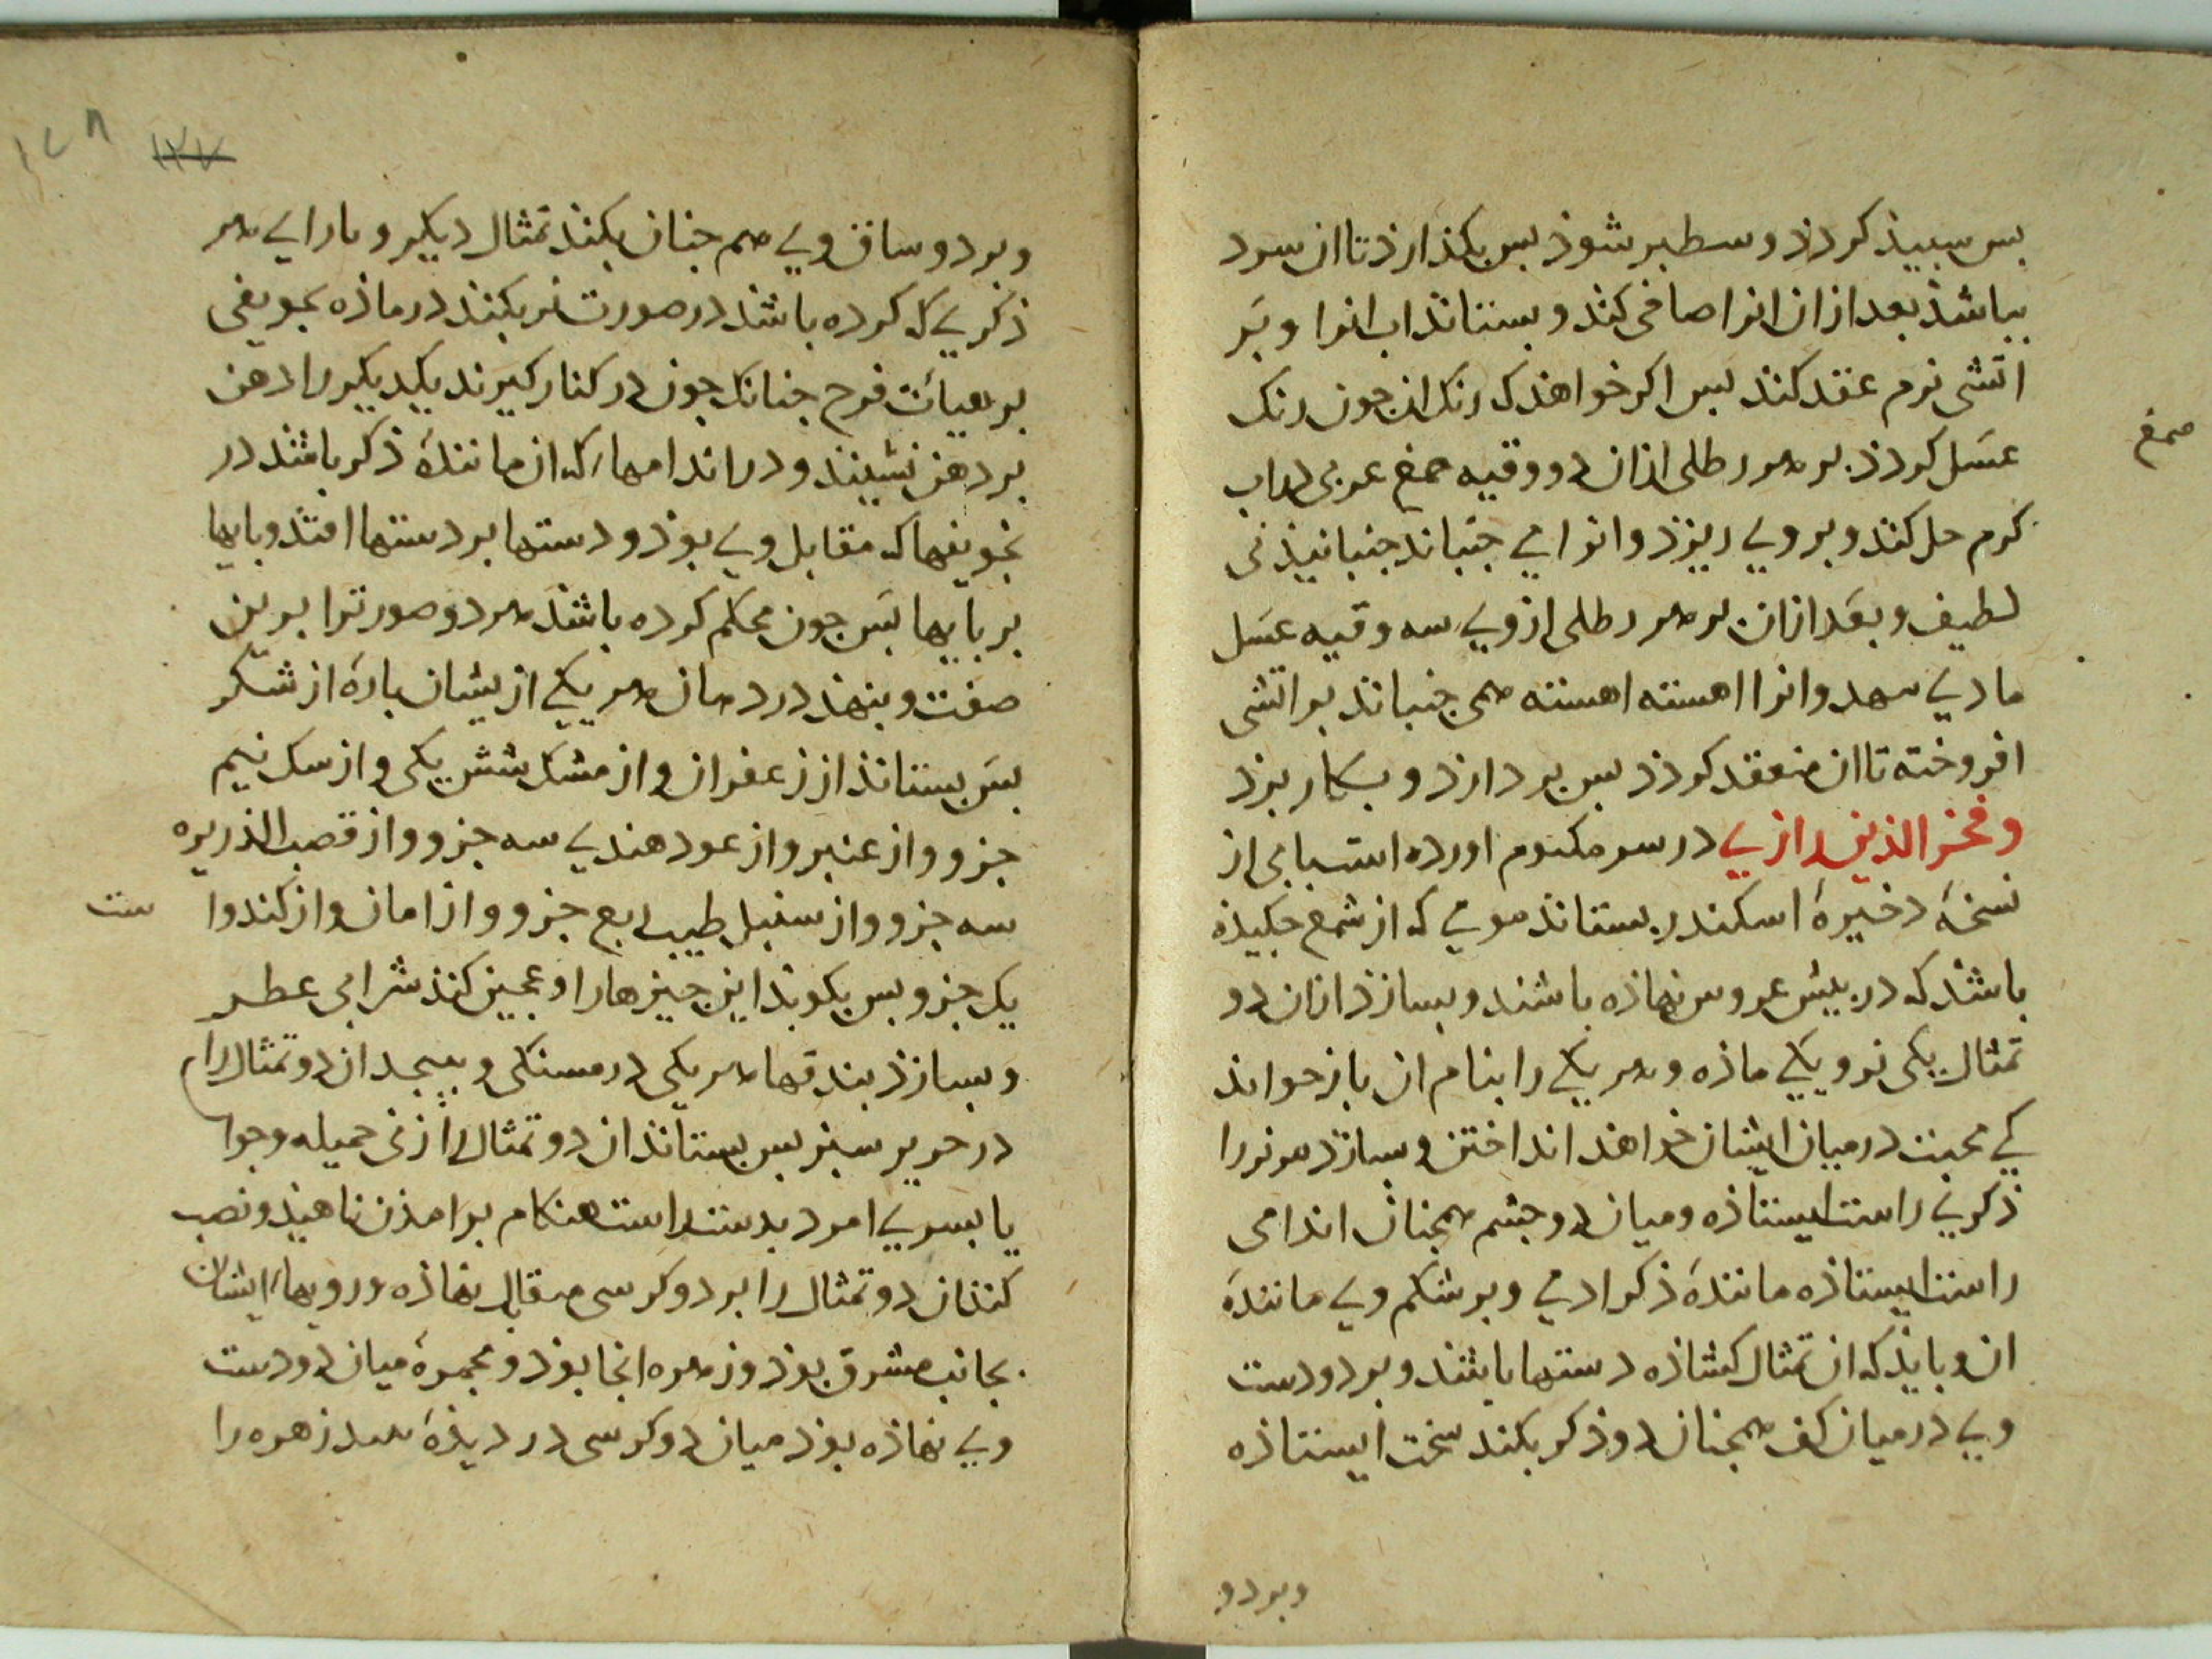 بس سبید کردد و سطبر شوذ بس بکذارذ تا ان سرد
بباشذ بعد ازان انرا صافی کند و بستاند اب انرا و بَر
اتشی نرم عقد کند بس اکر خواهند که رنک ان جون رنک
عسَل کردد بر هر رطلی ازان دو وقیه صمغ عربی دراب
صمغ
کرم حل کند و بر وی ریزذ و انرا می جنباند جنبانیذنی
لطیف و بعَد ازان بر هر رطلی از وی سه وقیه عسَل
ماذی نهد و انرا اهسته اهسته همی جنباند بر اتشی
افروخته تا ان منعقد کردد بس بردارد و بکار برد
و فخر الدین رازی در سر مکتوم اورده است بابی از
نسخهٔ ذخیرهٔ اسکندر بستاند مومی که از شمع جکیذه
باشد که در بیش عروس نهاذه باشند و بسازد ازان دو
تمثال یکی نر و یکی ماذه و هر یکی را بنام ان باز خواند
کی محبت درمیان ایشان خواهند انداختن و بسازد مر نر را
ذکری راست ایستاذه و میان دو جشم همجنان اندامی
راست ایستاذه مانندهٔ ذکر ادمی و بر شکم وی مانندهٔ
ان و بایذ که ان تمثال کشاذه دستها باشد و بر دو دست
وی درمیان کف همجنان دو ذکر بکند سخت ایستاذه
و بر دو
و بر دو ساق وی هم جنان بکند تمثال دیکر و بازای هر
ذکری که کرده باشد در صورت نر بکند در ماذه تجویفی
بر هیات فرج جنانک جون در کنار کیرند یکدیکر را دهن
بر دهن نشیند و در اندامهاء که ان مانندهٔ ذکر باشد در
تجویفها که مقابل وی بوذ و دستها بر دستها افتد و بایها
بر بایها بس جون محکم کرده باشد هر دو صورترا برین
صفت و بنهد در دهان هر یکی ازیشان بارهٔ از شکر
بس بستاند از زعفران و از مشک شش یکی و از سک نیم
جزو و از عنبر و از عود هندی سه جزو و از قصب الذریره
سه جزو و از سنبل طیب ربع جزو و از امان و از کندر ا
ست
یک جزو بس بکوبد این جیزها را و عجین کند شرابی عطر
و بسازذ بندقها هر یکی درمسنکی و بیجد ان دو تمثال را
در حریر سبز بس بستاند ان دو تمثال را زنی جمیله و جوا
یا بسری امرد بدست راست هنکام برامذن ناهید و نصب
کند ان دو تمثال را بر دو کرسی مقابل نهاذه و رویهاء ایشان
بجانب مشرق بوذ و زهره انجا بوذ و مجمرهٔ میان دو دست
وی نهاذه بوذ میان دو کرسی در دیذهٔ زهره را
١٢٧
١٢٨